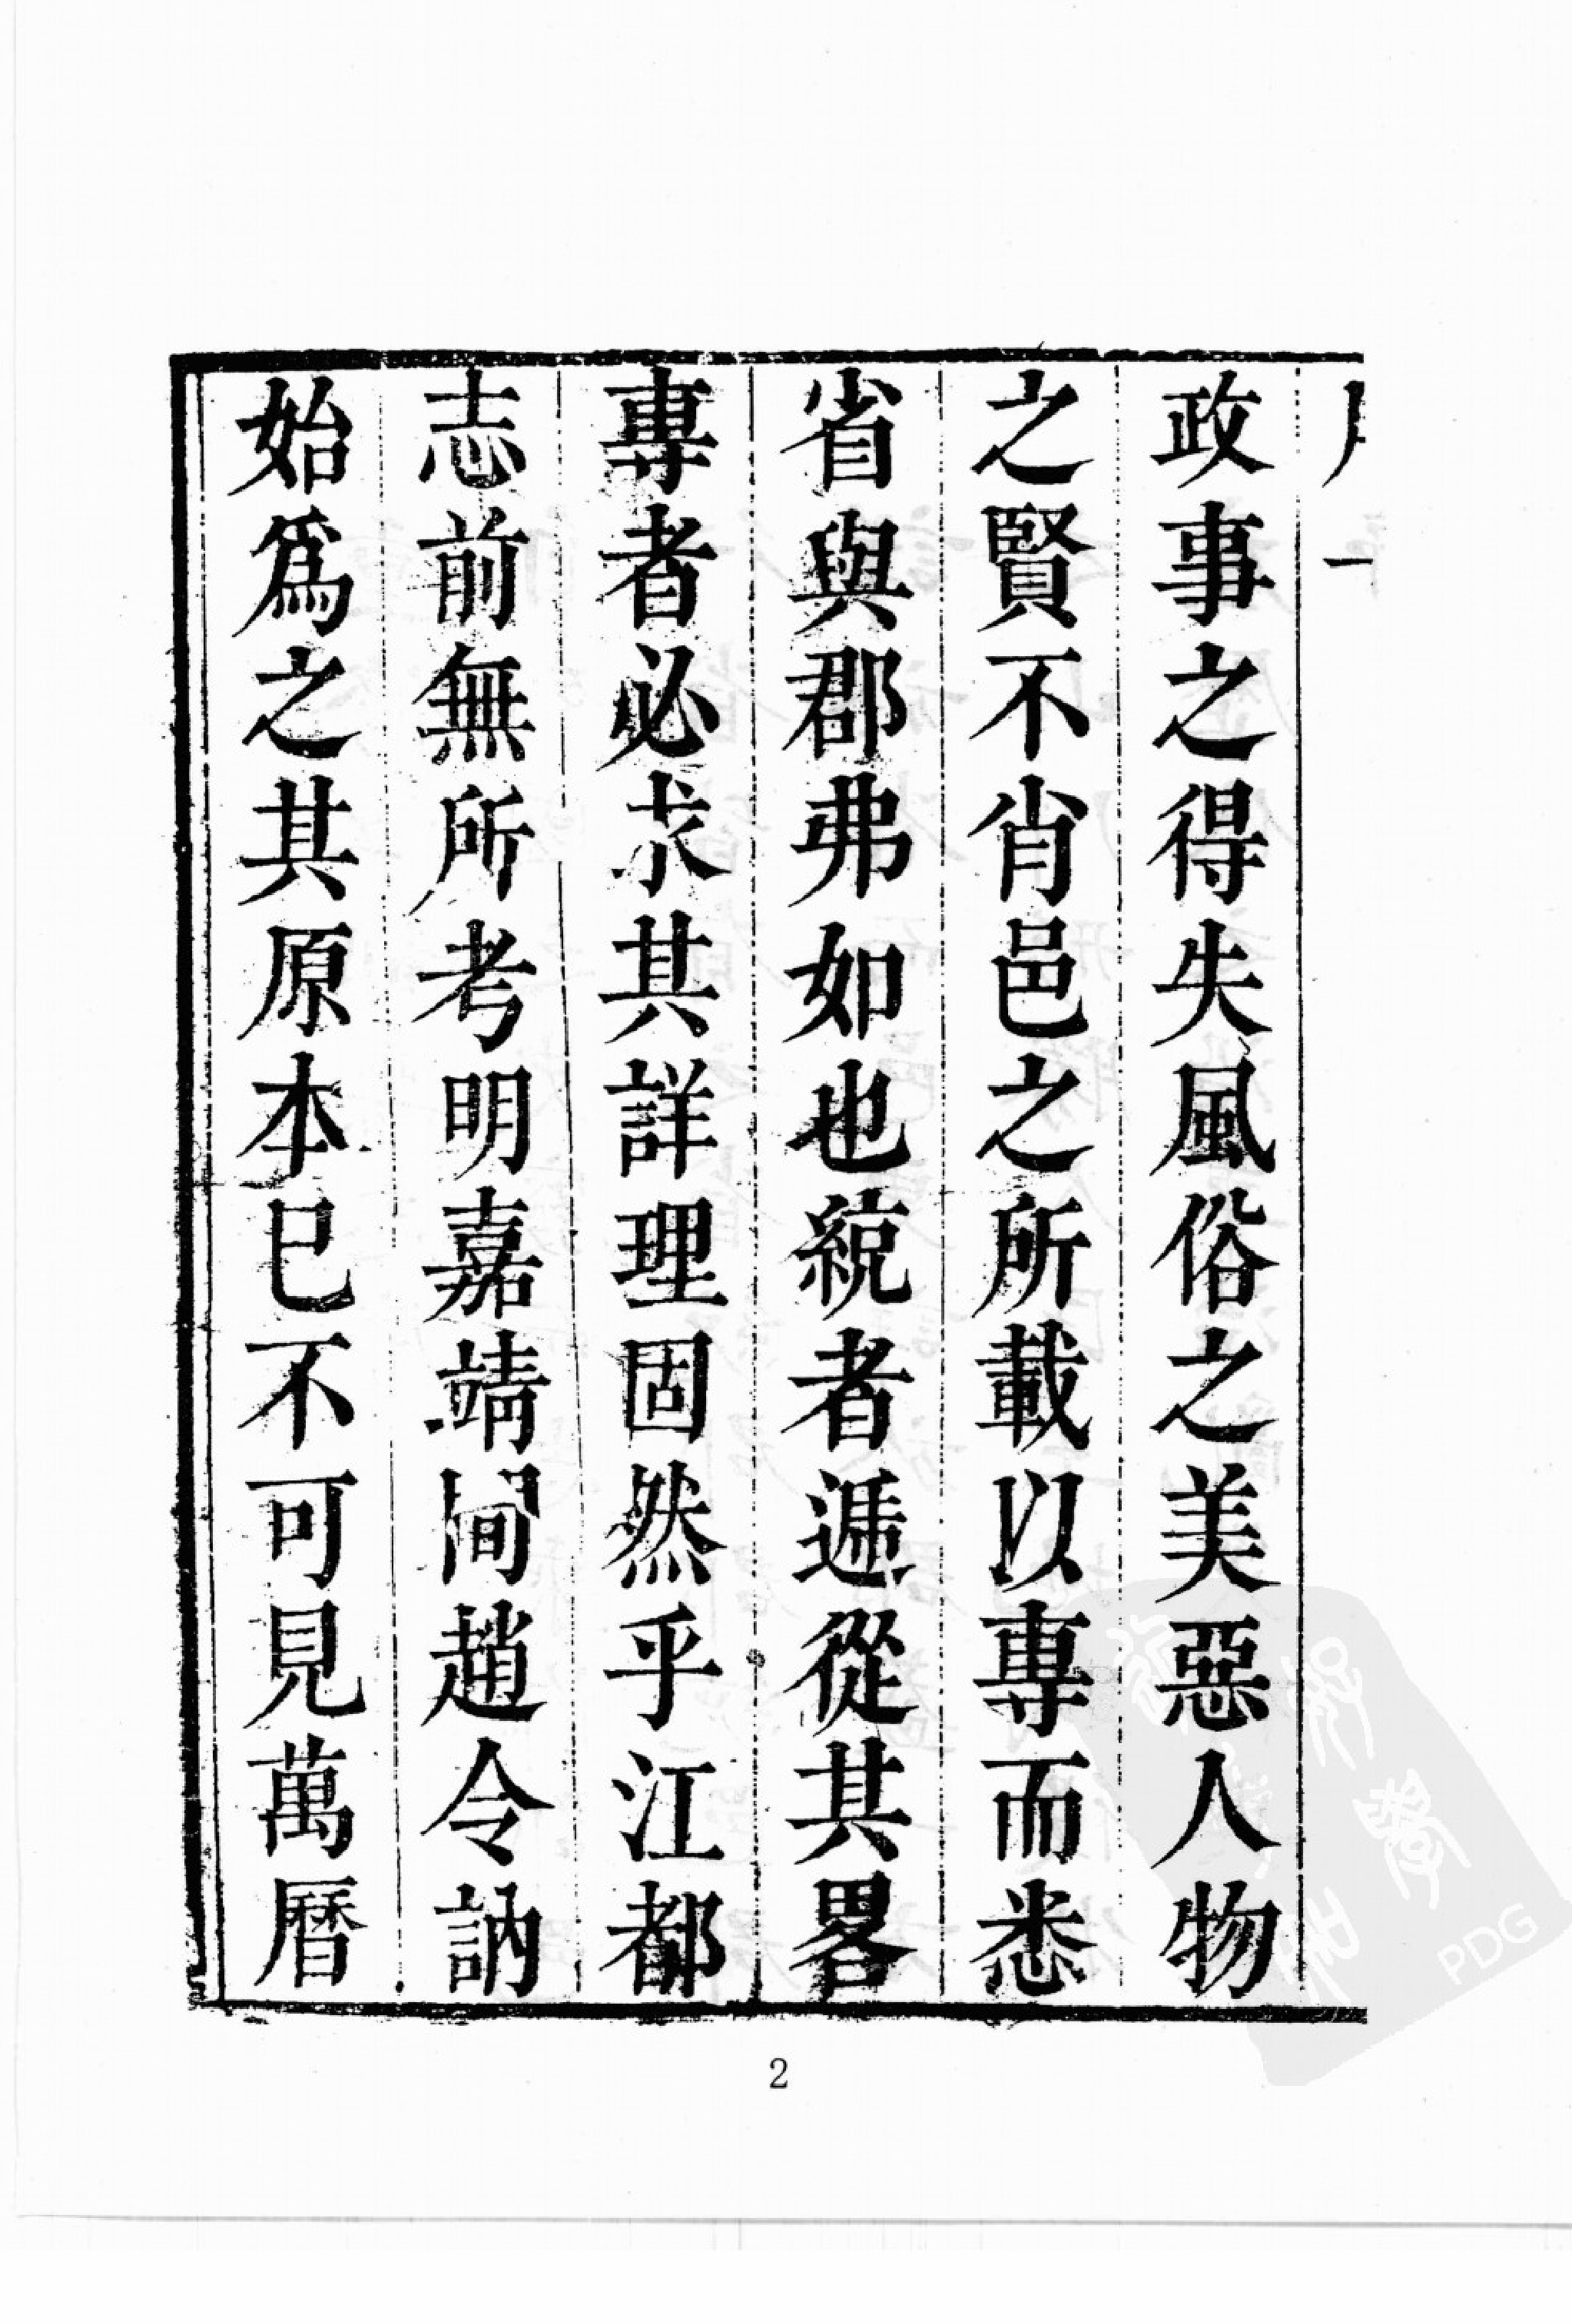 政事之得失風俗之美惡人物
之賢不肖邑之所載以專而悉
省與郡弗如也綂者遞從其畧
專者必求其詳理固然乎江都
志前無所考明嘉靖間趙令訥
始爲之其原本已不可見萬曆
2
PDG